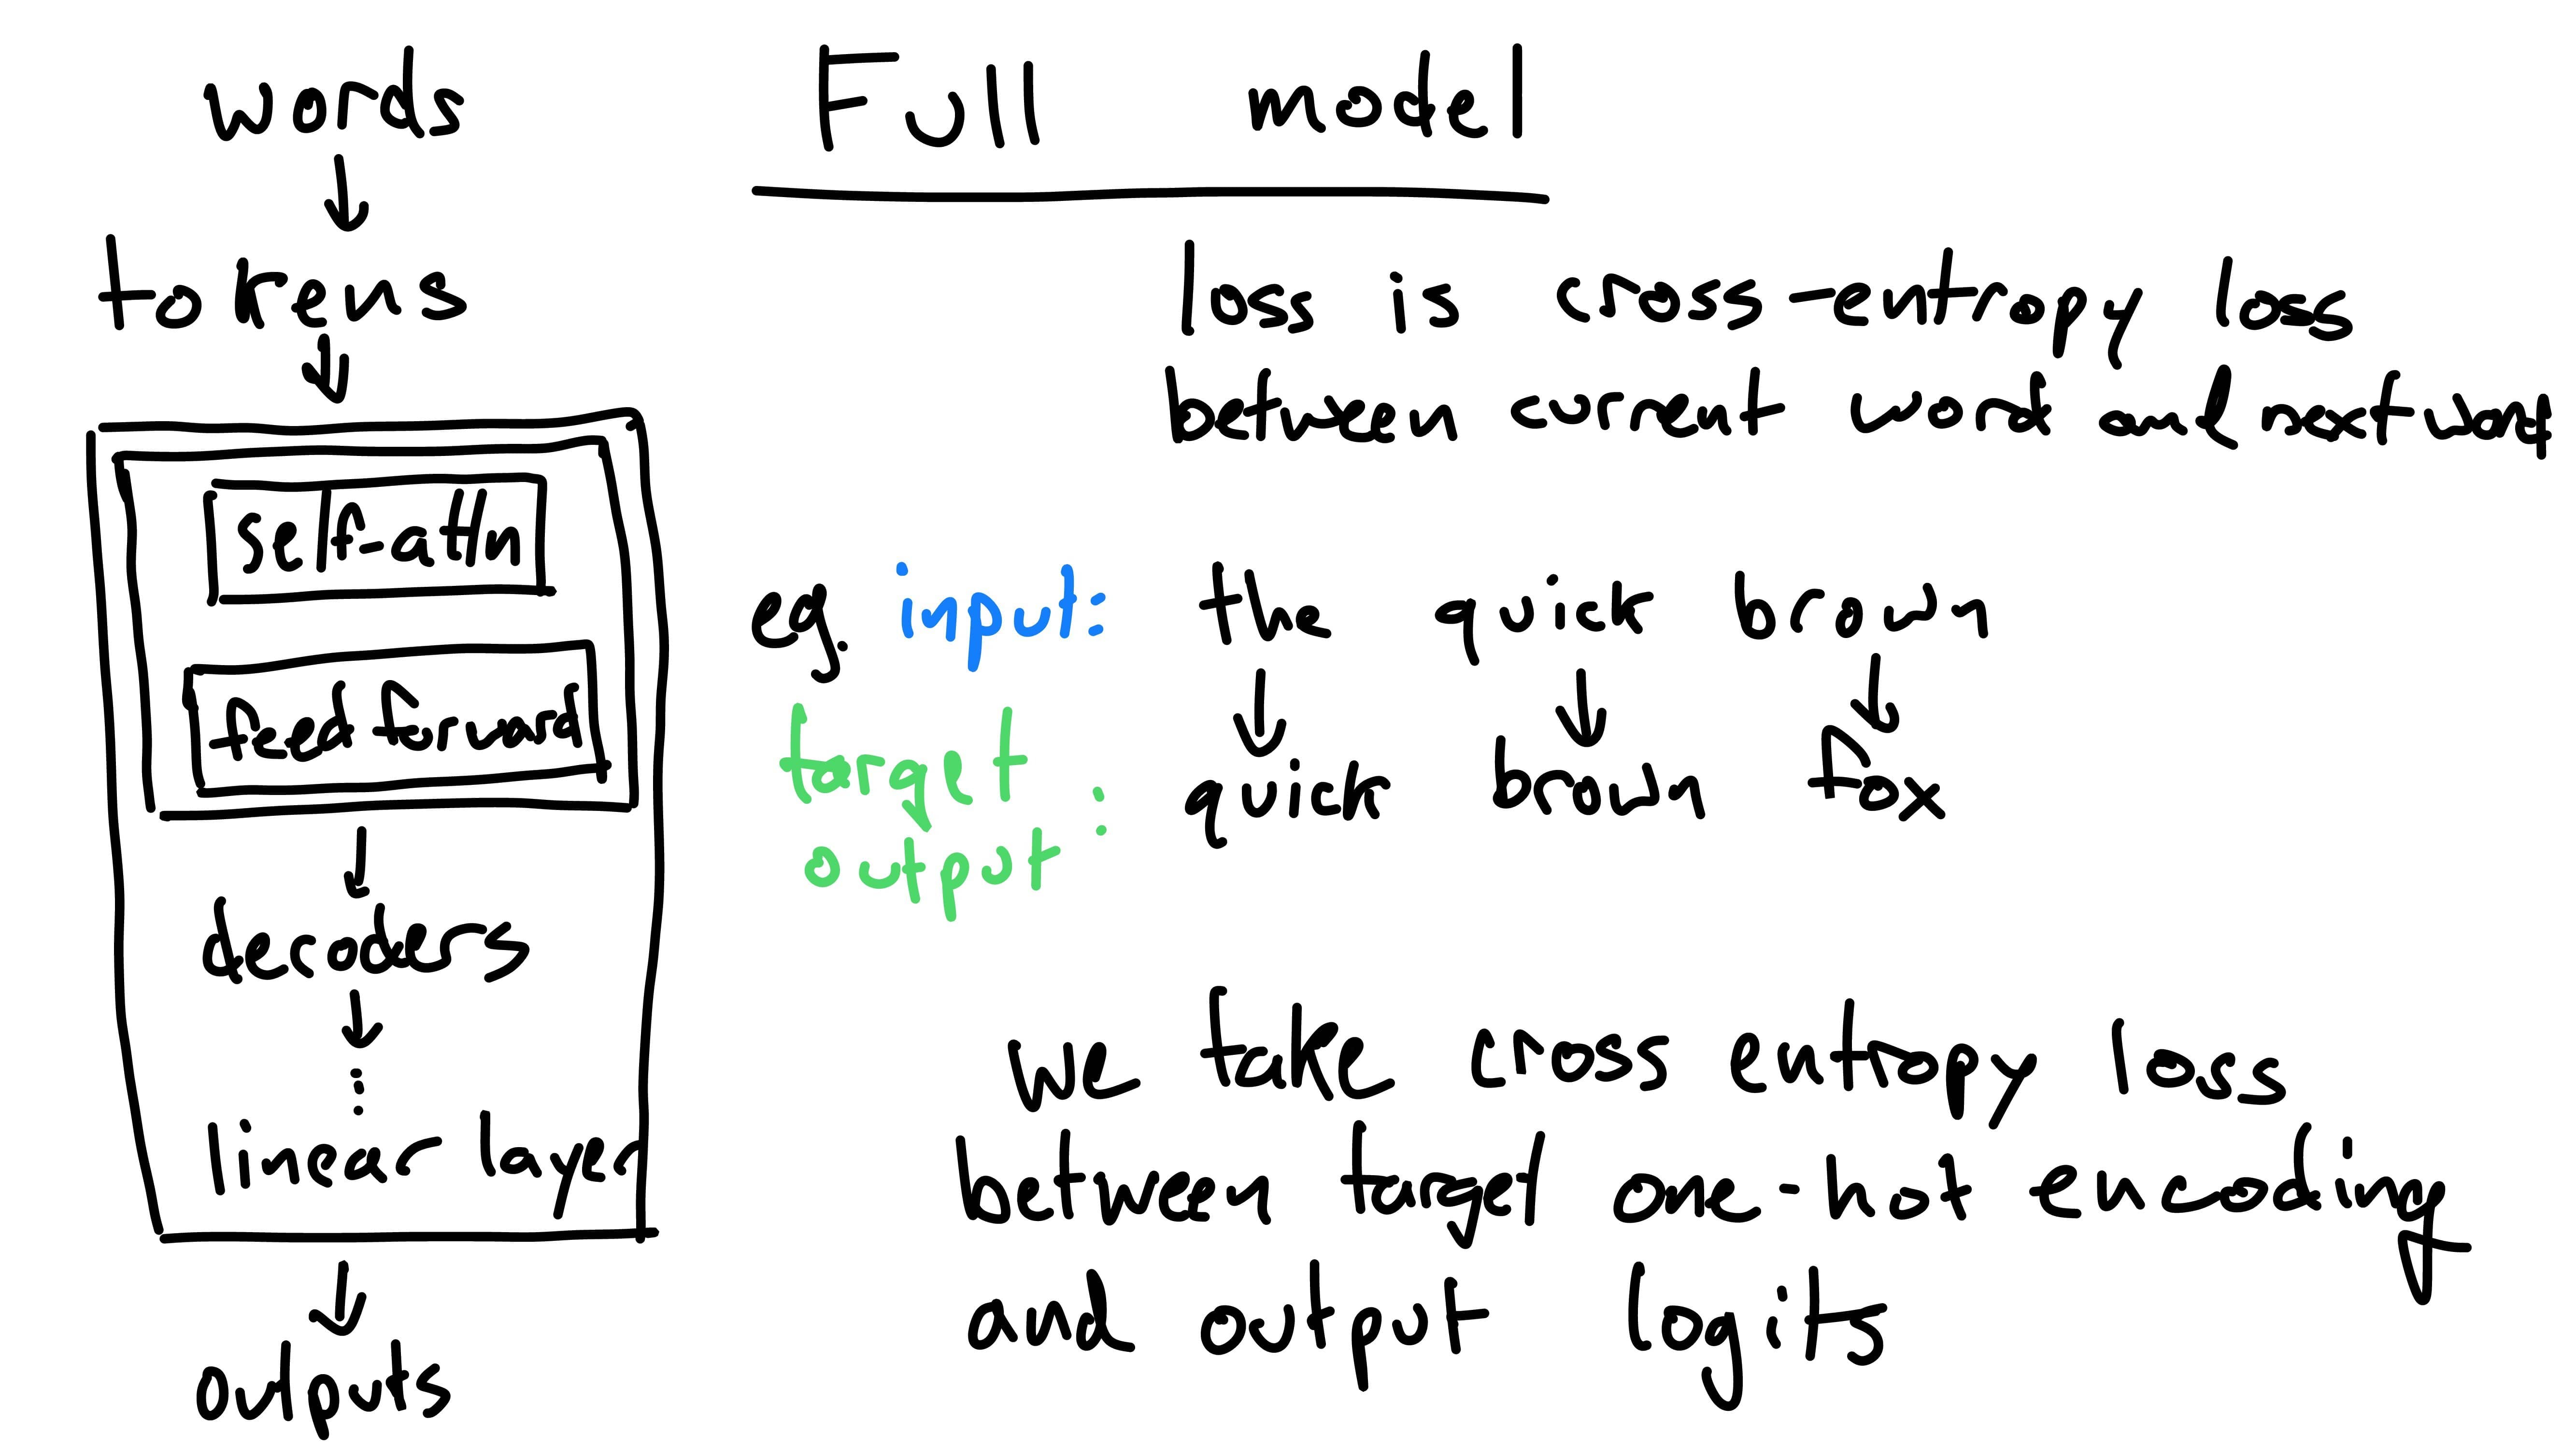 Full model
words
tokens
self-attn
feed forward
decoders
linear layer
outputs
loss is cross-entropy loss
between current word and next word
eg. input: the quick brown
target output: quick brown fox
we take cross entropy loss
between target one-hot encoding
and output logits